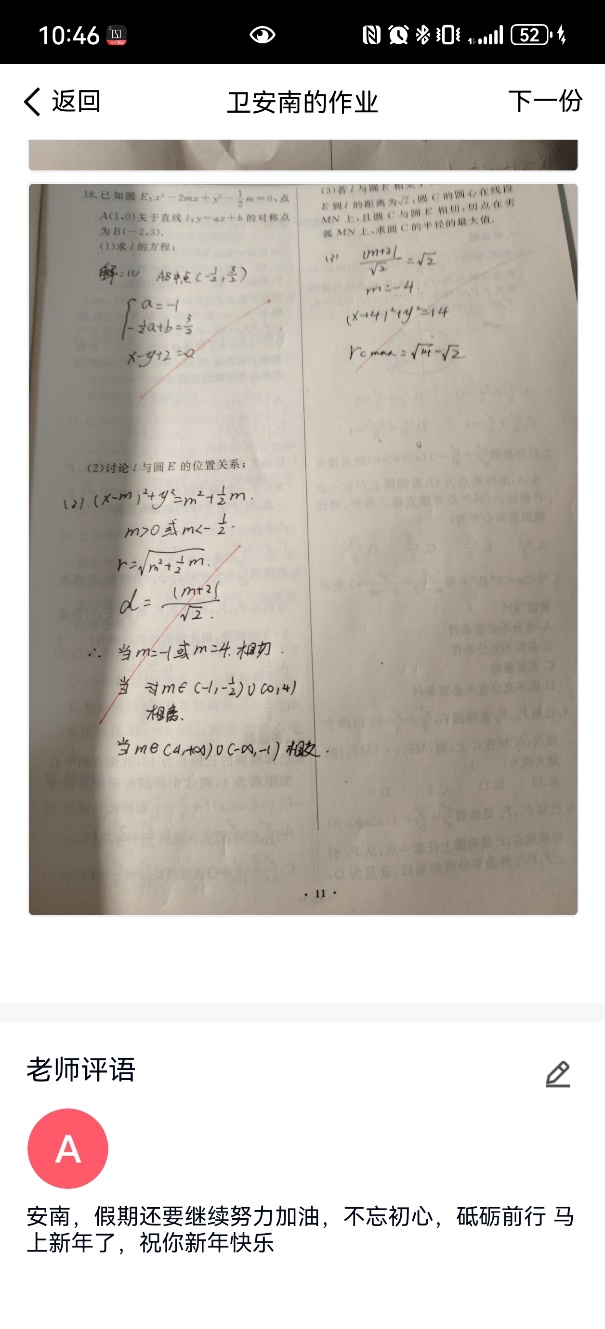 10:46
52
返回
卫安南的作业
下一份
18.已知圆 E:x²-2mx+y²-½m=0,点
A(1,0)关于直线 l:y=ax+b 的对称点
为 B(-2,3).
(1)求 l 的方程;
解:(1) AB中点(-½,3/2)
a=-1
-½a+b=3/2
x-y+2=0
(2)讨论 l 与圆 E 的位置关系;
(2) (x-m)²+y²=m²+½m.
m>0或m<-½.
r=√(m²+½m).
d=|m+2|/√2.
∴ 当m=-1或m=4.相切.
当 m∈(-1,-½)∪(0,4)
相离.
当m∈(4,+∞)∪(-∞,-1)相交.
E 到 l 的距离为√2,圆 C 的圆心在线段
MN 上,且圆 C 与圆 E 相切,切点在劣
弧 MN 上,求圆 C 的半径的最大值.
|m+2|/√2=√2
m=-4.
(x+4)²+y²=14
rcmax=√14-√2
· 11 ·
老师评语
A
安南，假期还要继续努力加油，不忘初心，砥砺前行 马
上新年了，祝你新年快乐